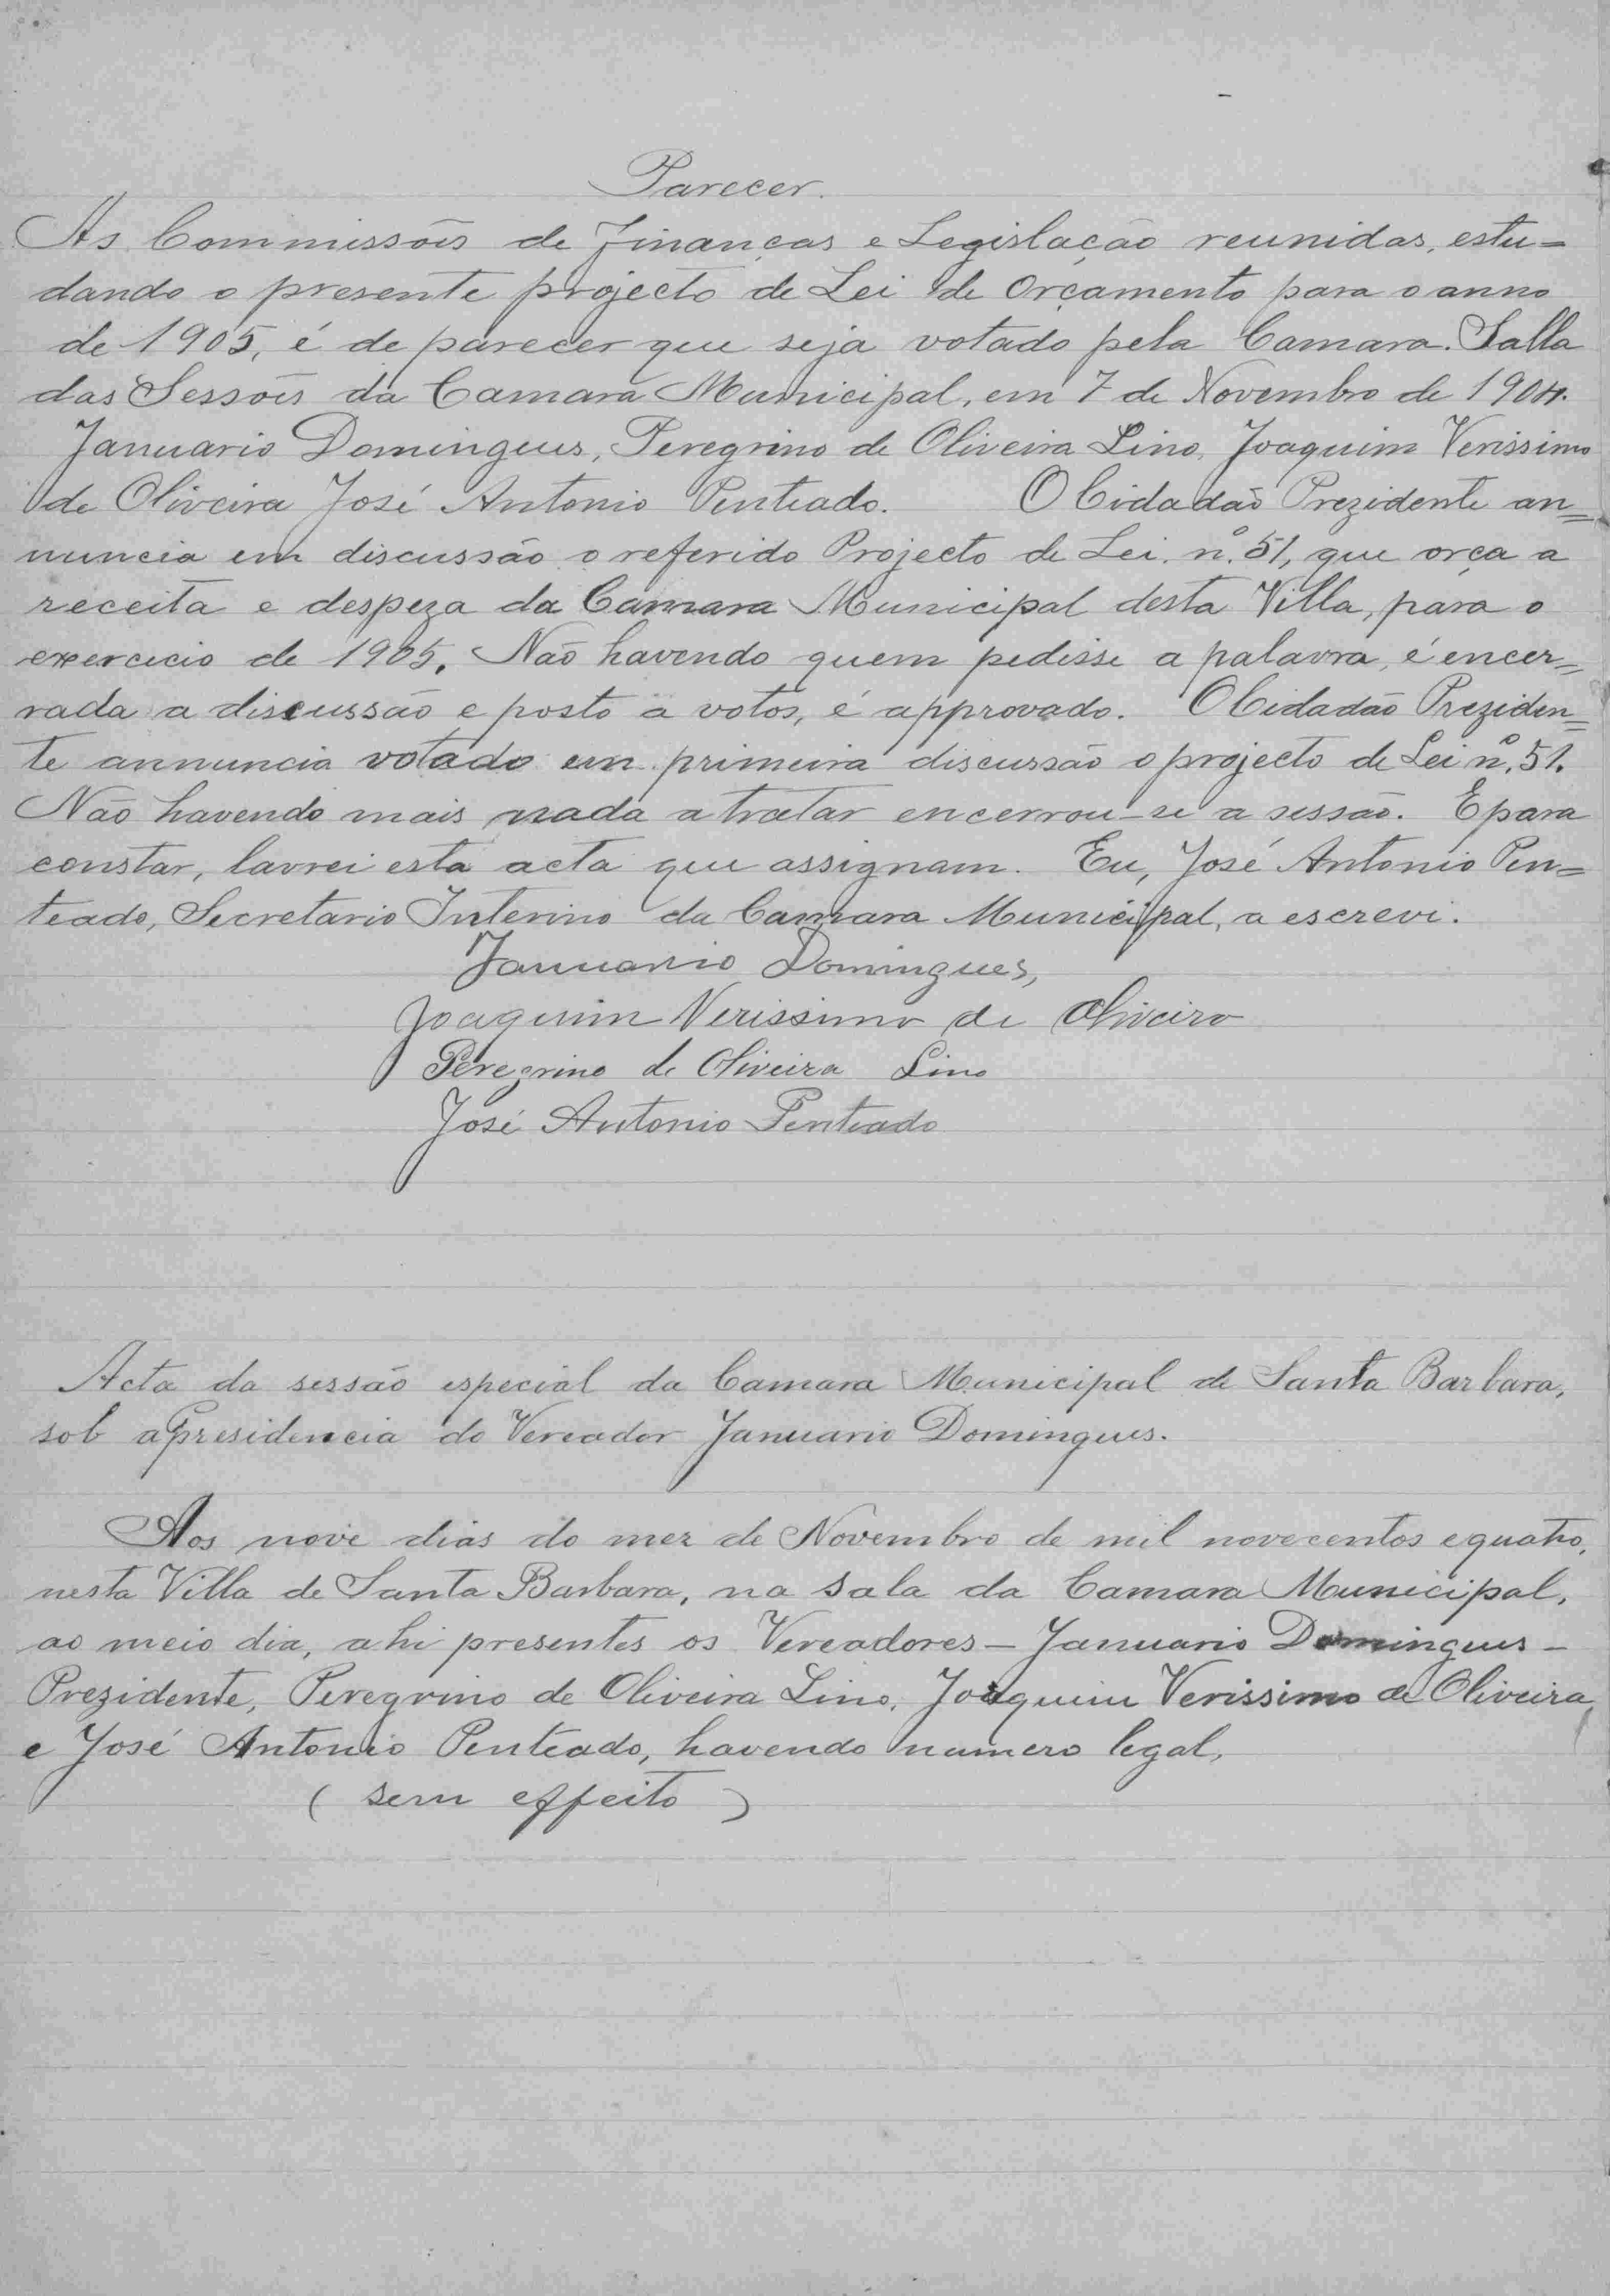 Parecer.
As Commissões de Finanças e Legislação reunidas, estu=
dando o presente projecto de Lei de Orçamento para o anno
de 1905, é de parecer que seja votado pela Camara. Salla
das Sessões da Camara Municipal, em 7 de Novembro de 1904.
Januario Domingues, Peregrino de Oliveira Lino, Joaquim Verissimo
de Oliveira José Antonio Penteado. O Cidadão Prezidente an=
nuncia em discussão o referido Projecto de Lei n.º 51, que orça a
receita e despeza da Camara Municipal desta Villa, para o
exercicio de 1905. Não havendo quem pedisse a palavra, é encer=
rada a discussão e posto a votos, é approvado. O Cidadão Preziden=
te annuncia votado em primeira discussão o projecto de Lei n.º 51.
Não havendo mais nada a tratar encerrou-se a sessão. E para
constar, lavrei esta acta que assignam. Eu, José Antonio Pen=
teado, Secretario Interino da Camara Municipal, a escrevi.
Januario Domingues,
Joaquim Verissimo de Oliveira
Peregrino de Oliveira Lino
José Antonio Penteado
Acta da sessão especial da Camara Municipal de Santa Barbara,
sob a Presidencia do Vereador Januario Domingues.
Aos nove dias do mez de Novembro de mil novecentos e quatro,
nesta Villa de Santa Barbara, na sala da Camara Municipal,
ao meio dia, ahi presentes os Vereadores – Januario Domingues –
Prezidente, Peregrino de Oliveira Lino, Joaquim Verissimo de Oliveira,
e José Antonio Penteado, havendo numero legal,
( sem effeito )